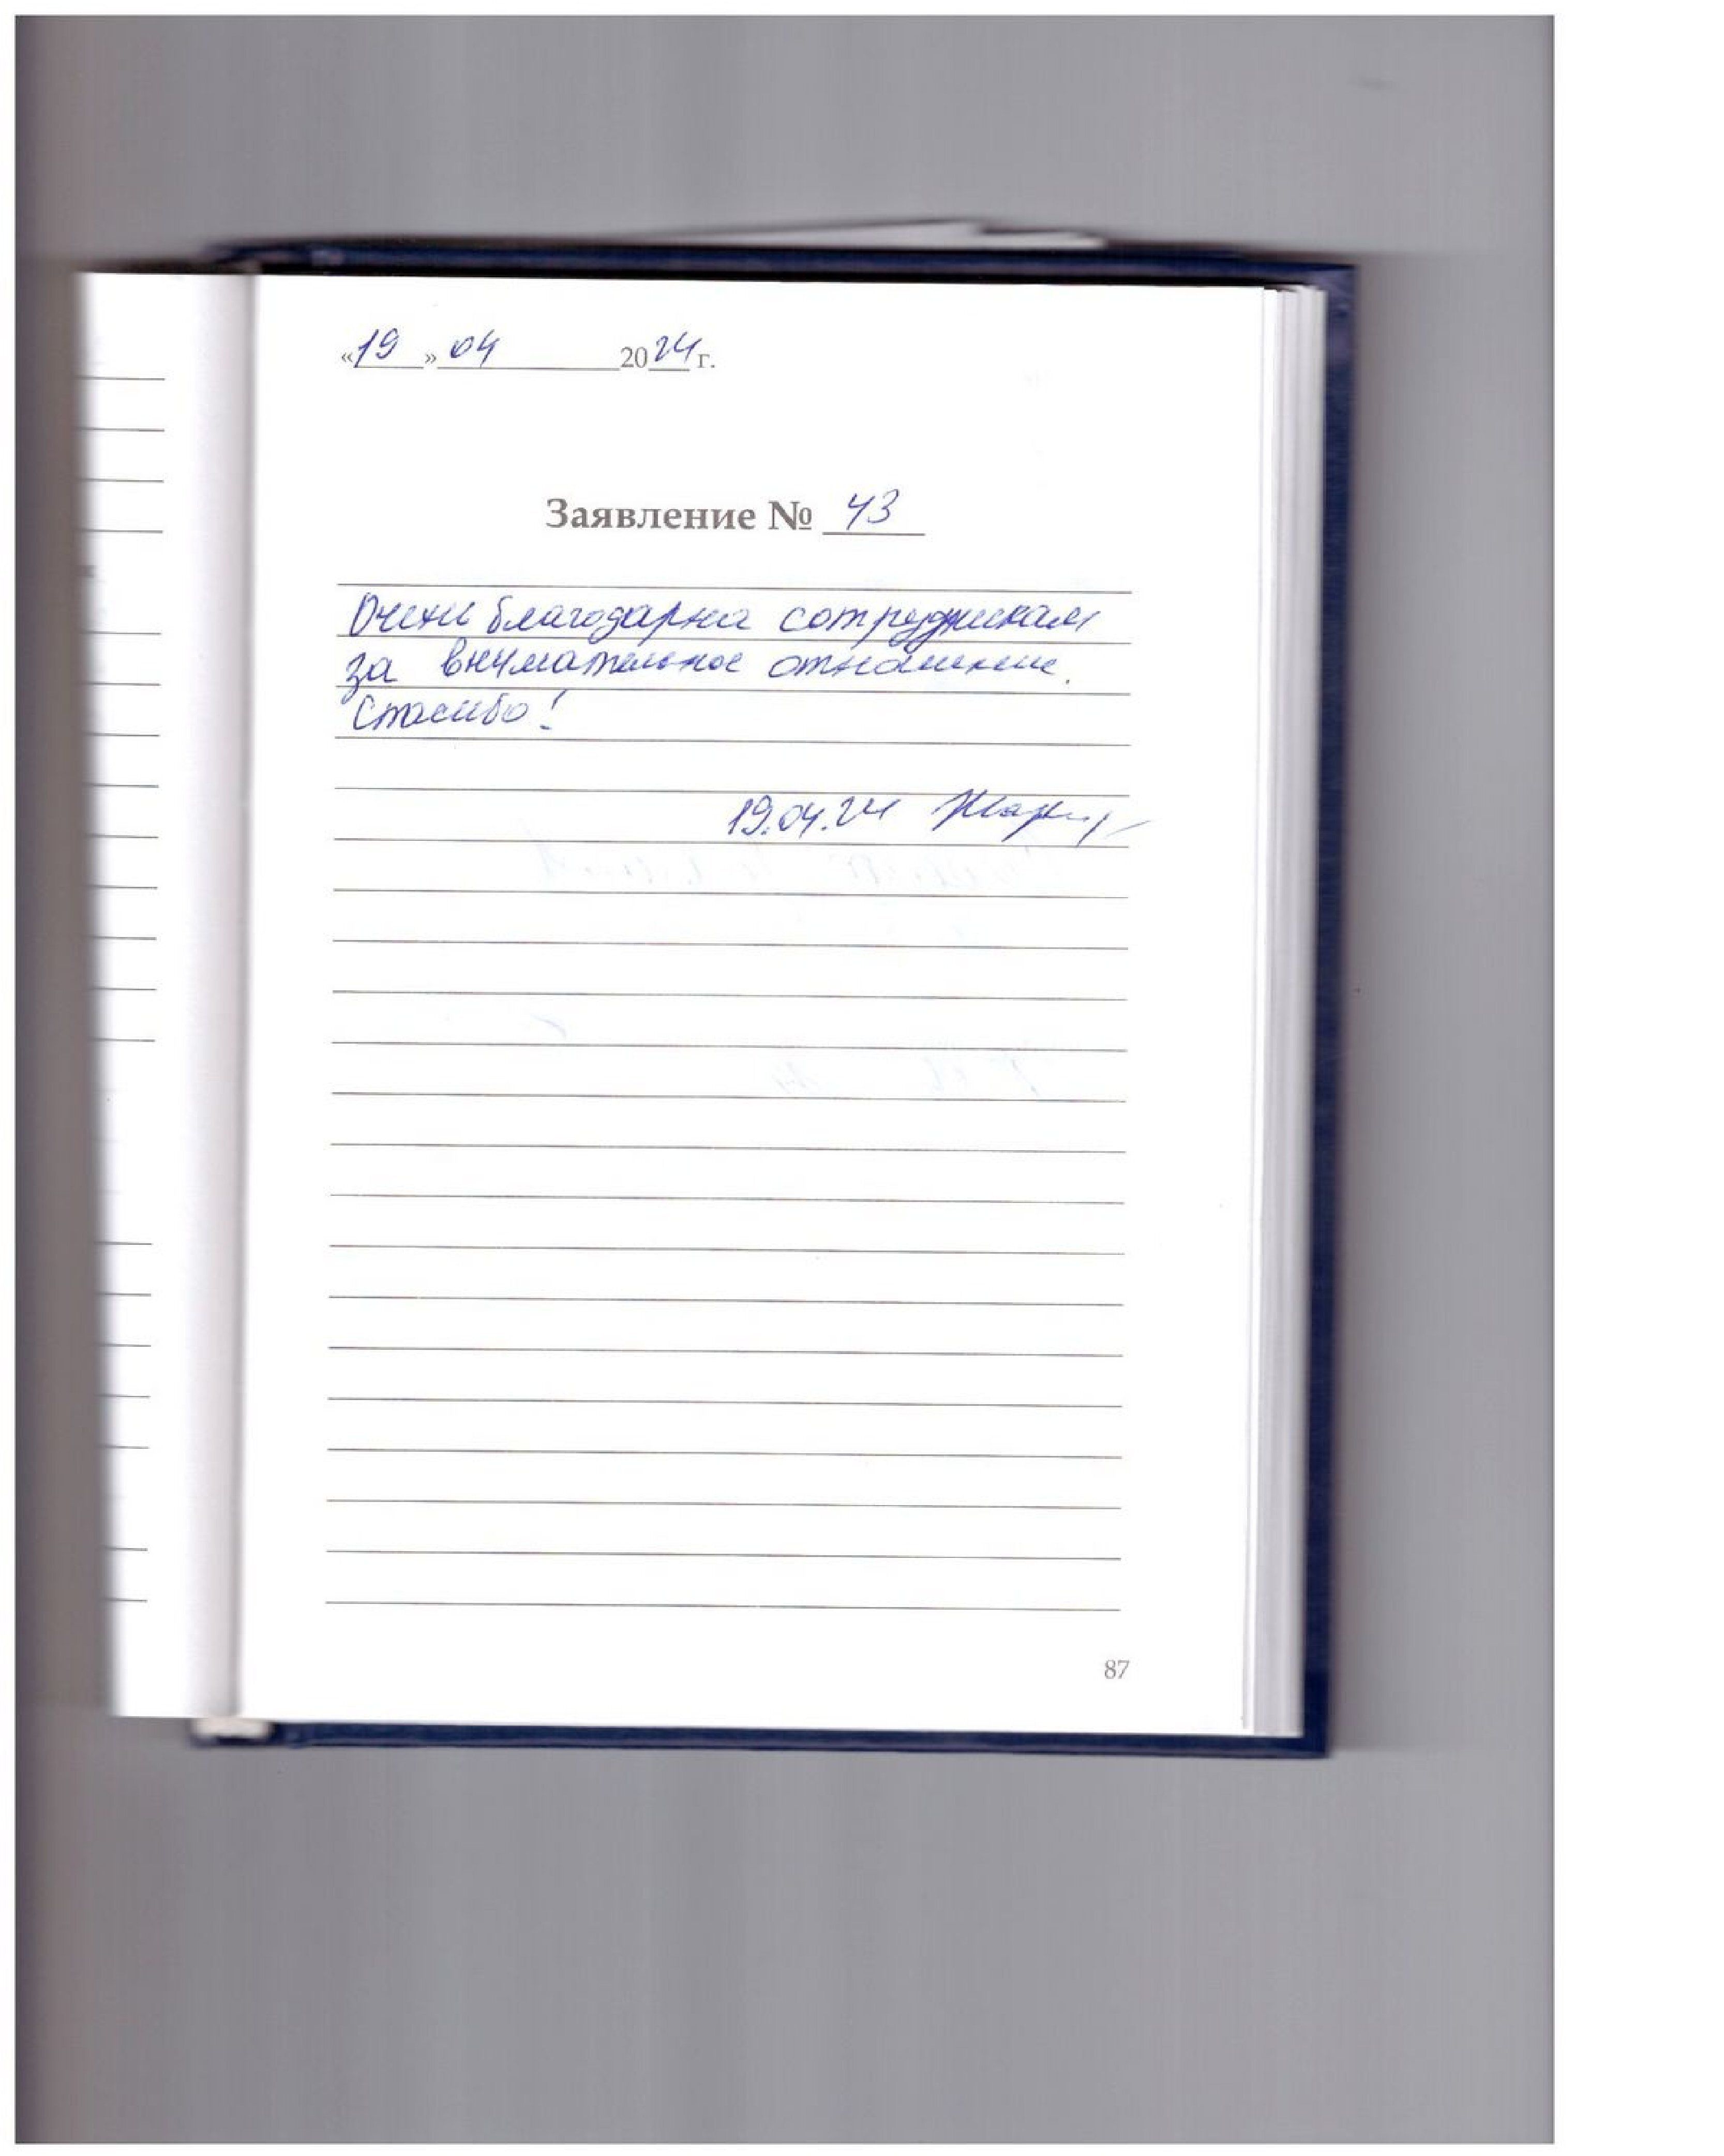 «19» 04 2024 г.
Заявление № 43
Очень благодарна сотрудникам
за внимательное отношение.
Спасибо!
19.04.24
87